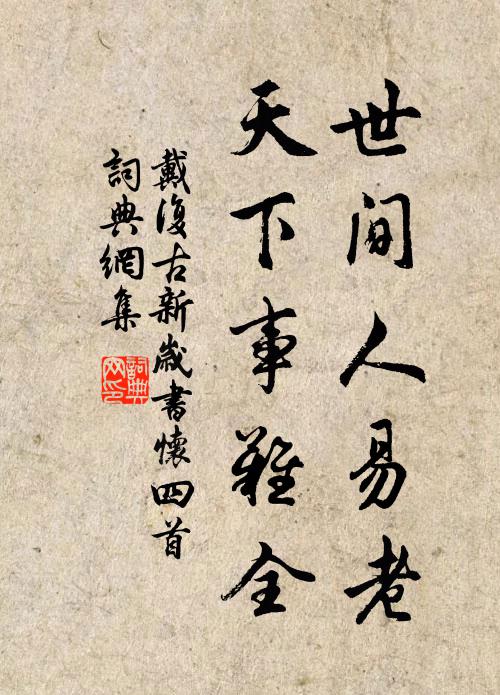 世間人易老
天下事難全
戴復古新歲書懷四首
詞典網集
詞典
网印